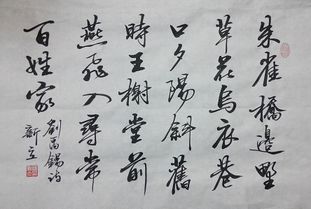 朱雀橋邊野
草花烏衣巷
口夕陽斜舊
時王榭堂前
燕飛入尋常
百姓家
劉禹錫詩
新立